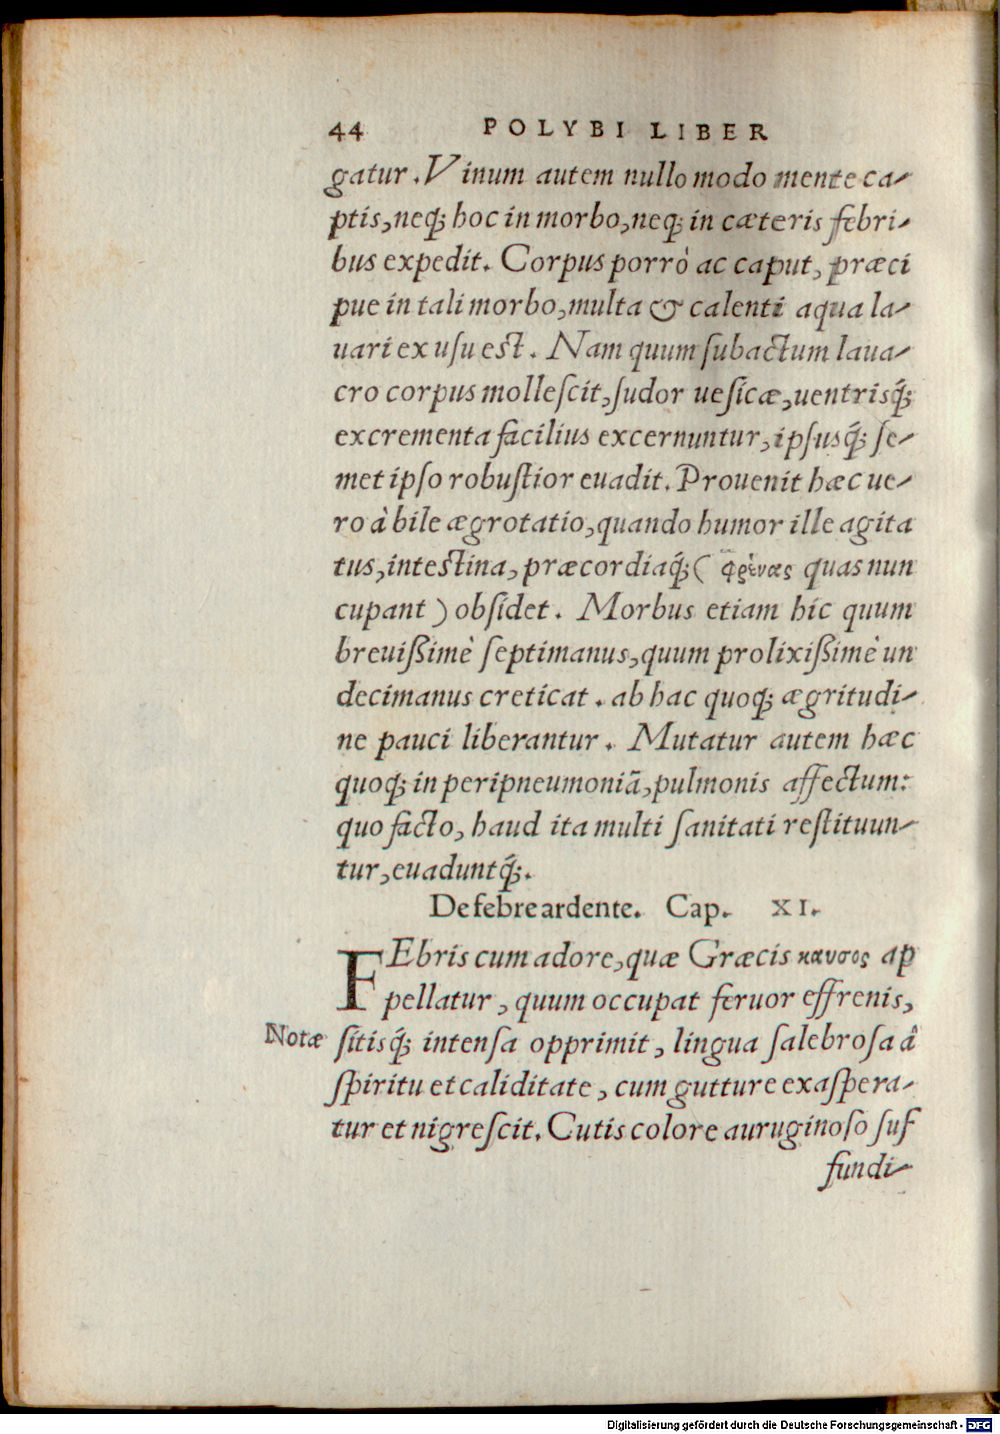 44 POLYBI LIBER
gatur. Vinum autem nullo modo mente ca-
ptis, neq; hoc in morbo, neq; in cæteris febri-
bus expedit. Corpus porrò ac caput, præci
pue in tali morbo, multa & calenti aqua la-
uari ex usu est. Nam quum subactum laua-
cro corpus mollescit, sudor uesicæ, uentrisq́;
excrementa facilius excernuntur, ipsusq́; se-
met ipso robustior euadit. Prouenit hæc ue-
ro à bile ægrotatio, quando humor ille agita
tus, intestina, præcordiaq́; ( φρένας quas nun
cupant ) obsidet. Morbus etiam hic quum
breuißimè septimanus, quum prolixißimè un
decimanus creticat. ab hac quoq; ægritudi-
ne pauci liberantur. Mutatur autem hæc
quoq; in peripneumoniã, pulmonis affectum:
quo facto, haud ita multi sanitati restituun-
tur, euaduntq́;.
De febre ardente. Cap. XI.
FEbris cum adore, quæ Græcis καυσος ap
pellatur, quum occupat feruor effrenis,
Notæ sitisq́; intensa opprimit, lingua salebrosa â
spiritu et caliditate, cum gutture exaspera-
tur et nigrescit. Cutis colore auruginoso suf
fundi-
Digitalisierung gefördert durch die Deutsche Forschungsgemeinschaft - DFG